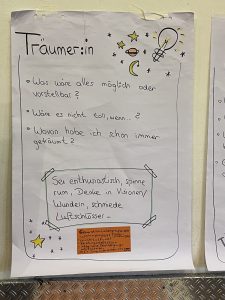 Träumer:in
• Was wäre alles möglich oder
vorstellbar?
• Wäre es nicht toll, wenn..?
• Wovon habe ich schon immer
geträumt?
Sei enthusiastisch, spinne
rum, Denke in Visionen/
Wundern, schmiede
Luftschlösser...